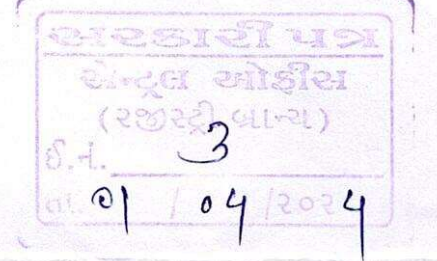 સરકારી પત્ર
સેન્ટ્રલ ઓફીસ
(રજીસ્ટ્રી બ્રાન્ચ)
ઈ.નં. ૩
તા. ૦૧ / ૦૫ /૨૦૨૫